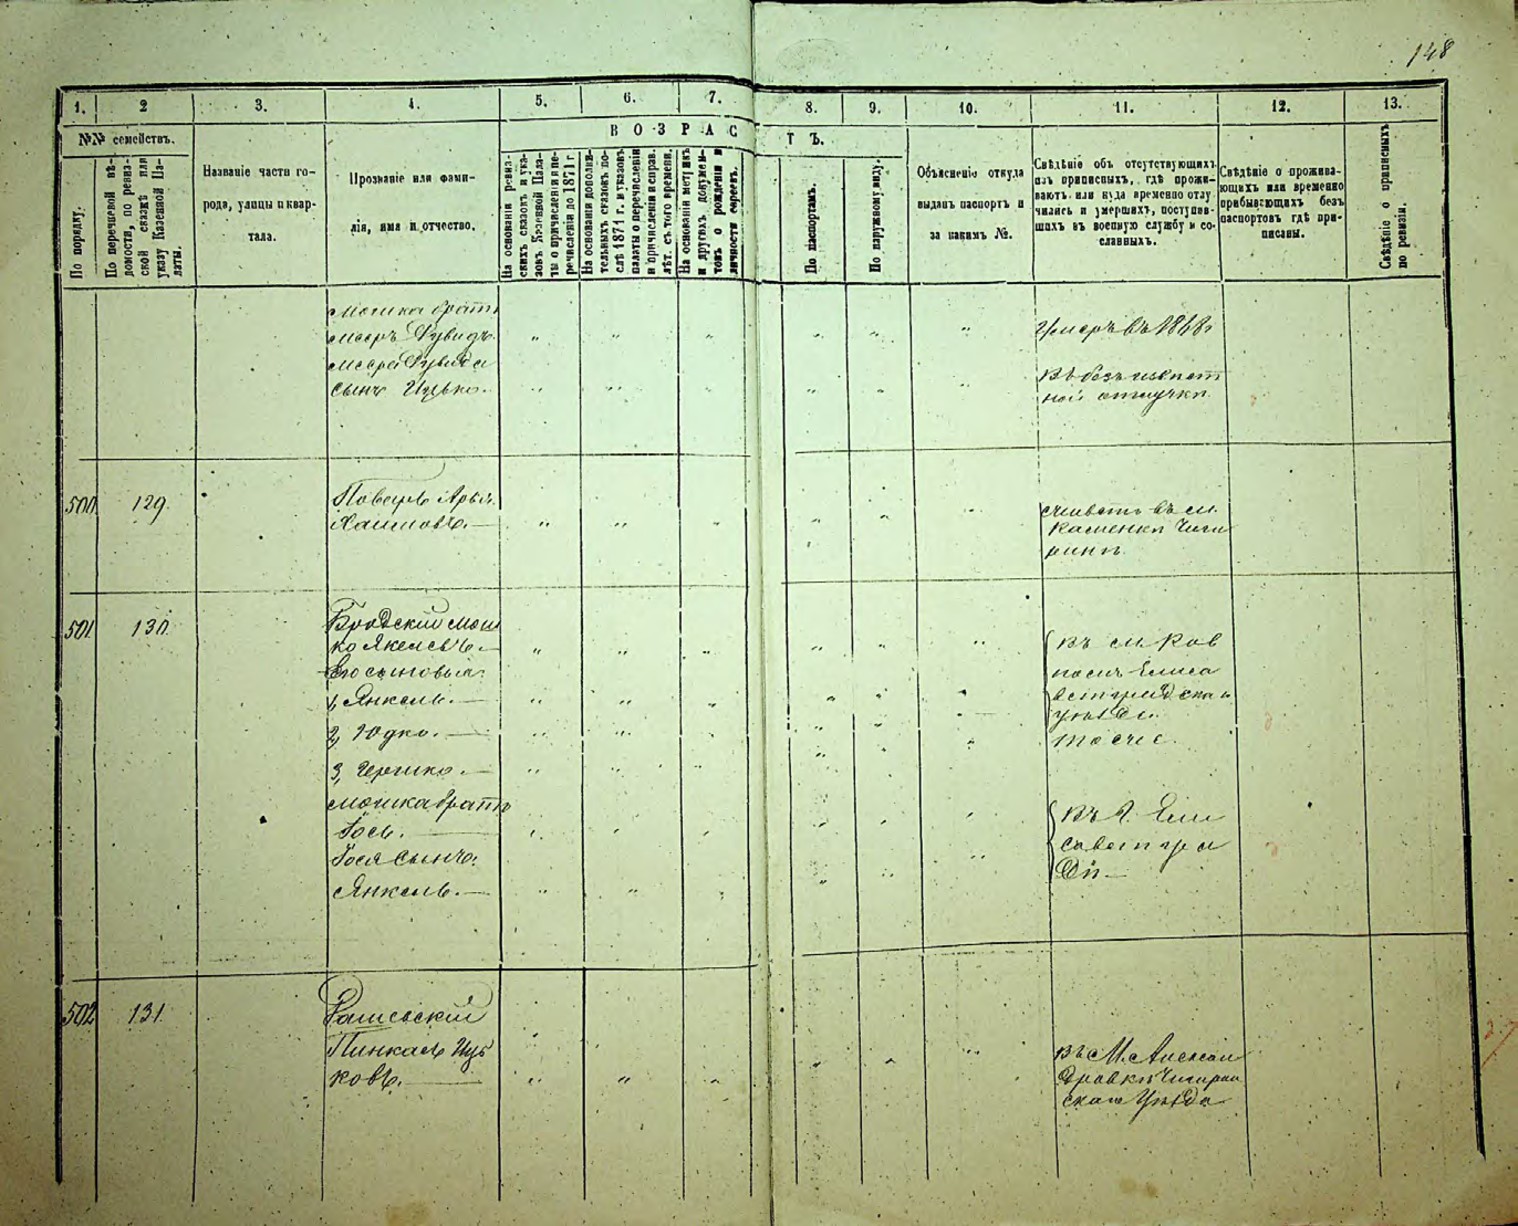 148
1. 2 3. 4. 5. 6. 7. 8. 9. 10. 11. 12. 13.
№№ семействъ.
ВОЗРАСТЪ.
По порядку.
По перечневой вѣ-
домости, по ревиз-
ской сказкѣ или
указу Казенной Па-
латы.
Названіе части го-
рода, улицы и квар-
тала.
Прозваніе или фами-
лія, имя и отчество.
На основаніи ревиз-
скихъ сказокъ и ука-
зовъ Казенной Пала-
ты о причисленіи и пе-
речисленіи до 1871 г.
На основаніи дополни-
тельныхъ сказокъ по-
слѣ 1871 г. и указовъ
палаты о перечисленіи
и причисленіи и справ.
лѣт. съ того времени.
На основаніи метрикъ
и другихъ докумен-
товъ о рожденіи и
личности евреевъ.
По паспортамъ.
По наружному виду.
Объясненіе откуда
выданъ паспортъ и
за какимъ №.
Свѣдѣніе объ отсутствующихъ
изъ приписныхъ, гдѣ прожи-
ваютъ или куда временно отлу-
чились и умершихъ, поступив-
шихъ въ военную службу и со-
сланныхъ.
Свѣдѣніе о прожива-
ющихъ или временно
прибывающихъ безъ
паспортовъ гдѣ при-
писаны.
Свѣдѣніе о приписныхъ
по ревизіи.
Мошка братъ
Мееръ Дувидъ.
Умеръ въ 1868 г
Меера Дувида
сынъ Ицько.
Въ безъизвѣст
ной отлучкѣ
500 129.
Поваръ Арья
Хаимовъ.
живетъ въ м.
Каменкѣ Чиги
ринъ
501 130.
Бродскій Мош
ко Якелевъ.
Его сыновья:
1, Янкель.
2, Юдко.
3, Гершко.
Въ м. Ров
номъ Елиса
ветградска
уѣзда.
тоже.
Мошка братъ
Іось.
Іося сынъ:
Янкель.
Въ г. Ели
саветгра
дѣ
502 131.
Рашевскій
Пинкасъ Иць
ковъ.
въ М. Алексан
дровкѣ Чигрин
скаго Уѣзда